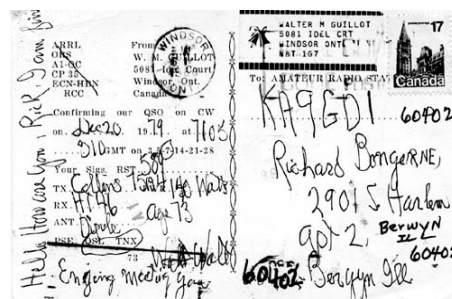 Hello How are you Rick, I am fine
ARRL
OHS
A1-OC
CP 35
ECN-HBN
RCC
From
W. M. GUILLOT
5081 Idel Court
Windsor, Ont.
Canada
WINDSOR
ONT
Confirming our QSO on CW
on Dec 20 1979 at 7103
310 GMT on 3.5-7-14-21-28
Your Sigs. RST 589
TX. Collins
Watts
RX.
Age 73
ANT. Dipole
PSE QSL TNX
73 Walt
Enjoy meeting you
WALTER M GUILLOT
5081 IDEL CRT
WINDSOR ONT
17
Canada
To: AMATEUR RADIO STA
KA9GDI
60402
Richard
2901 S Harlem
apt 2,
BERWYN
IL
60402
60402 Berwyn Ill